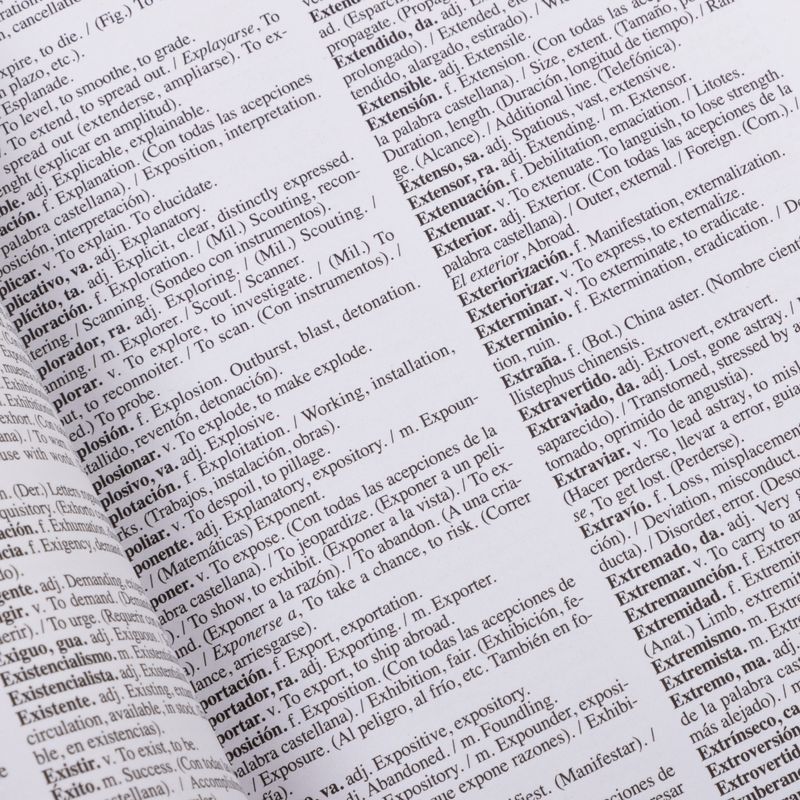 cancellane
xpire, to die. / (Fig.) To
n plazo, etc.).
Esplanade.
To level, to smoothe, to grade.
To extend, to spread out. / Explayarse, To
spread out (extenderse, ampliarse). To ex-
lenght (explicar en amplitud).
ble. adj. Explicable, explainable.
ación. f. Explanation. (Con todas las acepciones
palabra castellana). / Exposition, interpretation.
osición, interpretación).
plicar. v. To explain. To elucidate.
plicativo, va. adj. Explanatory.
plícito, ta. adj. Explicit, clear, distinctly expressed.
ploración. f. Exploration. / (Mil.) Scouting, recon-
/ Scanning (Sondeo con instrumentos).
plorador, ra. adj. Exploring. / (Mil.) Scouting. /
anning / m. Explorer. / Scout. / Scanner.
plorar. v. To explore, to investigate. / (Mil.) To
out, to reconnoiter. / To scan. (Con instrumentos). /
ed.) To probe.
plosión. f. Explosion. Outburst, blast, detonation.
tallido, reventón, detonación).
plosionar. v. To explode, to make explode.
plosivo, va. adj. Explosive.
plotación. f. Exploitation. / Working, installation,
ks. (Trabajos, instalación, obras).
poliar. v. To despoil, to pillage.
ponente. adj. Explanatory, expository. / m. Expoun-
/ (Matemáticas) Exponent.
poner. v. To expose. (Con todas las acepciones de la
labra castellana). / To jeopardize. (Exponer a un peli-
/ To show, to exhibit. (Exponer a la vista). / To ex-
nd. (Exponer a la razón). / To abandon. (A una cria-
/ Exponerse a, To take a chance, to risk. (Correr
ance, arriesgarse).
portación. f. Export, exportation.
portador, ra. adj. Exporting. / m. Exporter.
portar. v. To export, to ship abroad.
posición. f. Exposition. (Con todas las acepciones de
palabra castellana). / Exhibition, fair. (Exhibición, fe-
/ Exposure. (Al peligro, al frío, etc. También en fo-
va. adj. Expositive, expository.
adj. Abandoned. / m. Foundling.
Expository. / m. Expounder, exposi-
que expone razones). / Exhibi-
ifest. (Manifestar). /
ad. (Esparcir
propagate. (Propaga
Extendido, da. adj. Extended, e
prolongado). / Extended,
tendido, alargado, estirado). /
Extensible. adj. Extensile.
Extensión. f. Extension. (Con todas las acepc
la palabra castellana). / Size, extent. (Tamaño,
Duration, length. (Duración, longitud de tiempo). / Ran
ge. (Alcance). / Additional line. (Telefónica).
Extenso, sa. adj. Spatious, vast, extensive.
Extensor, ra. adj. Extending. / m. Extensor.
Extenuación. f. Debilitation, emaciation. / Litotes.
Extenuar. v. To extenuate. To languish, to lose strength.
Exterior. adj. Exterior. (Con todas las acepciones de la
palabra castellana). / Outer, external. / Foreign. (Com.). /
El exterior, Abroad.
Exteriorización. f. Manifestation, externalization.
Exteriorizar. v. To express, to externalize.
Exterminar. v. To exterminate, to eradicate.
Exterminio. f. Extermination, eradication. /
tion, ruin.
Extraña. f. (Bot.) China aster. (Nombre cient
llistephus chinensis.
Extravertido. adj. Extrovert, extravert.
Extraviado, da. adj. Lost, gone astray. /
saparecido). / Transtorned, stressed by a
tornado, oprimido de angustia).
Extraviar. v. To lead astray, to misl
(Hacer perderse, llevar a error, guia
se, To get lost. (Perderse).
Extravío. f. Loss, misplacement
ción). / Deviation, misconduct.
ducta). / Disorder, error. (Deso
Extremado, da. adj. Very g
Extremar. v. To carry to a
Extremaunción. f. Extrem
Extremidad. f. Extremity
(Anat.) Limb, extremit
Extremismo. m. Extrem
Extremista. m. Extrem
Extremo, ma. adj.
de la palabra cast
más alejado). / m
Extrínseco, ca
Extroversión
Extrovertid
n. (Der.) Letters
quisitory. (Exhor
ación. f. Exhumation
cia. f. Exigency, demand
gente. adj. Demanding,
igir. v. To demand. (Dema
erir). / To urge. (Requerir con
Exiguo, gua. adj. Exiguous
Existencialismo. m. Existentia
Existencialista. adj. Existentia
Existente. adj. Existing, ex
circulation, available, in stock
ble, en existencias).
Existir. v. To exist, to be.
Éxito. m. Success. (Con todas